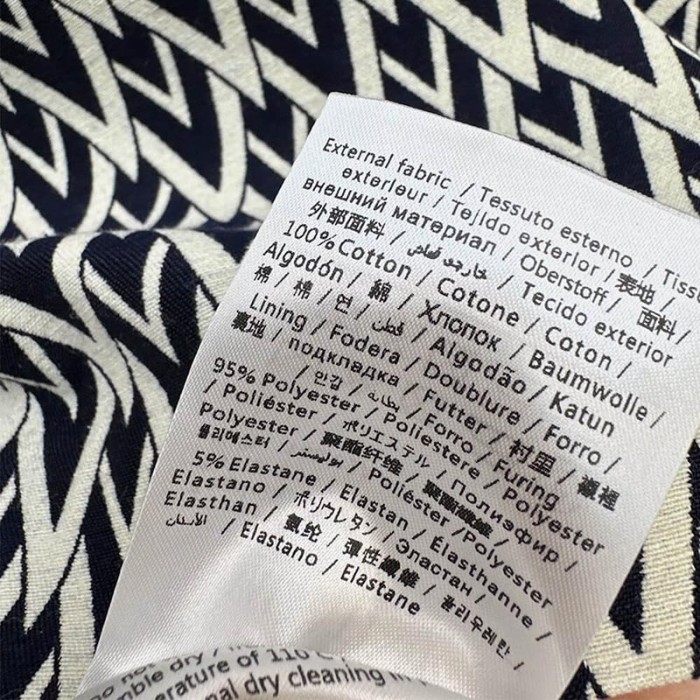 External fabric / Tessuto esterno / Tiss
exterieur / Tejido exterior / 表地 /
внешний материал / Oberstoff / 面料 /
外部面料 / خارجو قماش / Tecido exterior
100% Cotton / Cotone / Coton /
Algodón / 綿 / Хлопок / Baumwolle /
棉 / 棉 / 면 / قطن / Algodão / Katun
Lining / Fodera / Doublure / Forro /
裏地 / подкладка / Futter / 衬里 / 襯裡
/ 안감 / بطانه / Forro / Furing
95% Polyester / Poliestere / Polyester
/ Poliéster / ポリエステル / Полиэфир /
Polyester / 聚酯纤维 / 聚酯纖維 /
폴리에스터 / بوليستر / Poliéster / Polyester
5% Elastane / Elastan / Élasthanne /
Elastano / ポリウレタン / Эластан /
Elasthan / 氨纶 / 彈性纖維 / 폴리우레탄 /
الأستان / Elastano / Elastane
do not dry /
mble dry /
erature of 110 C
nal dry cleaning in